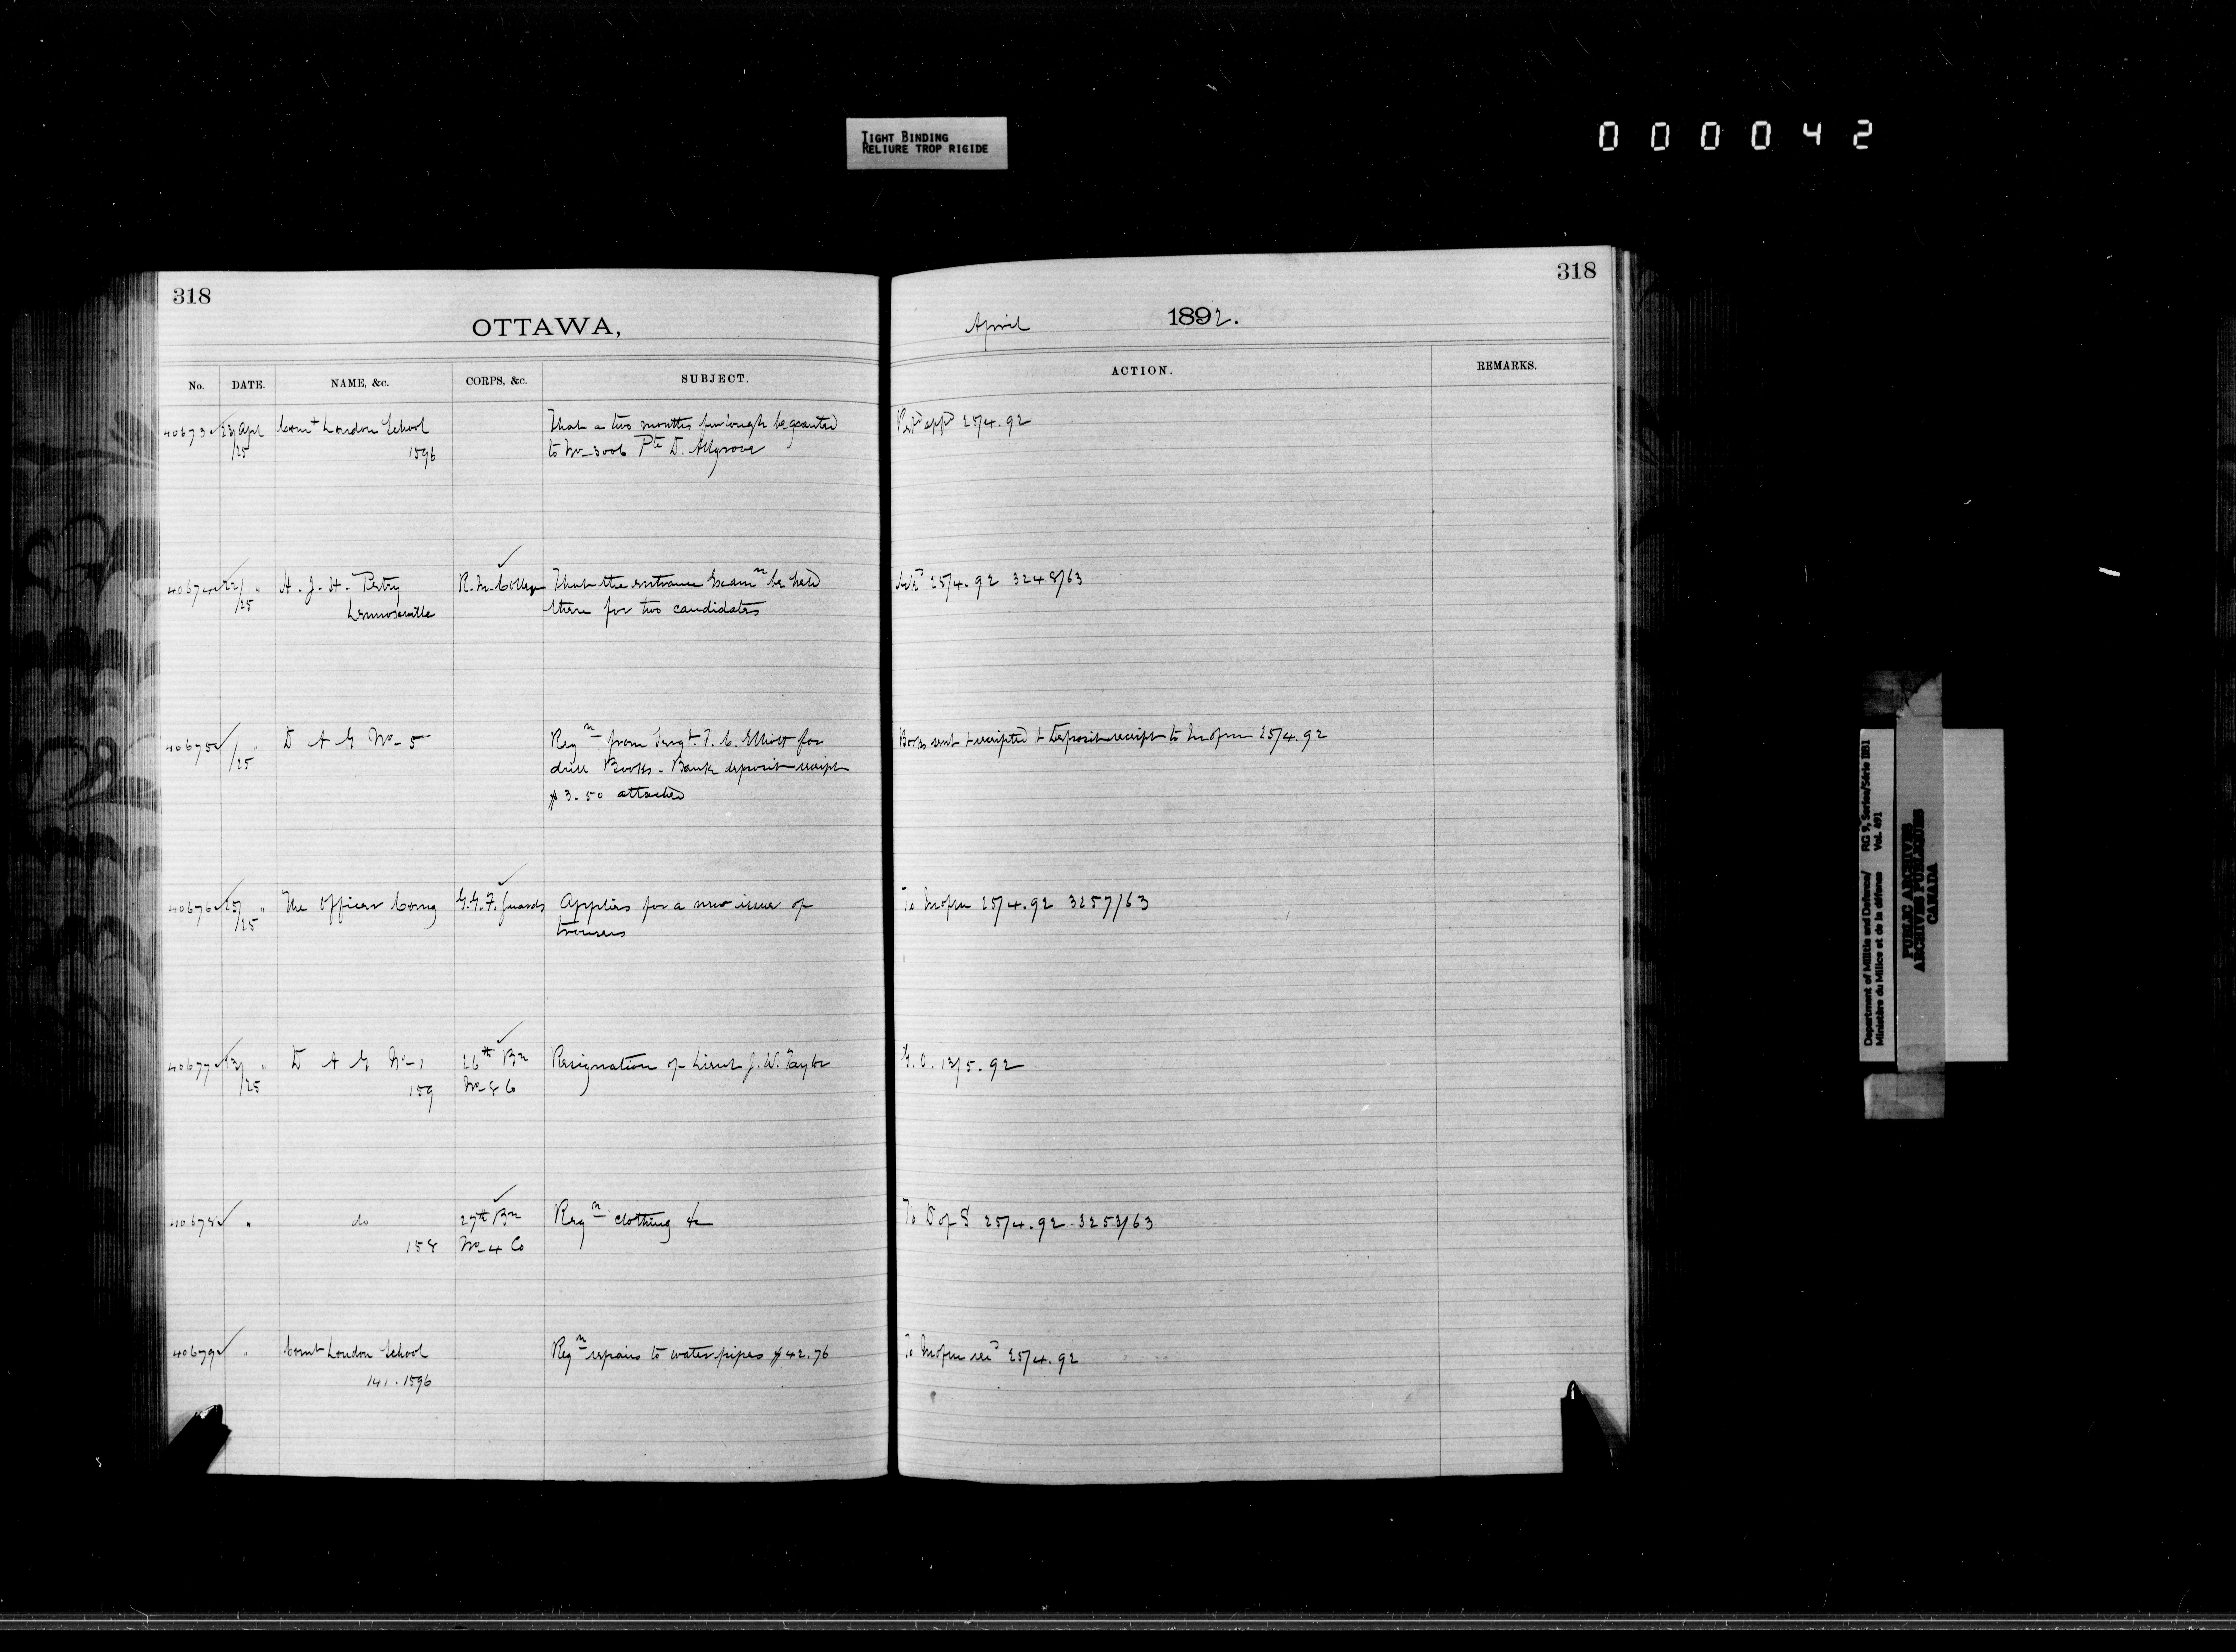 TIGHT BINDING
RELIURE TROP RIGIDE
000042
318
OTTAWA,
No. DATE. NAME, &c. CORPS, &c. SUBJECT.
40673 23/25 Apl Comt London School That a two months furlough be granted
1596 to No 3006 Pte D. Allgrove
40674 22/25 " H. J. H. Petry R. M. College That the entrance Examn be held
Lennoxville there for two candidates
40675 /25 " D A G No 5 Reqn from Sergt. T. C. Elliott for
drill Books. Bank deposit receipt
$3.50 attached
40676 25/25 " The Officer Comg G.G.F. Guards Applies for a new issue of
trousers
40677 13/25 " D A G No 1 26th Bn Resignation of Lieut J. W. Taylor
159 No 8 Co
40678 " do 27th Bn Reqn clothing &c
158 No 4 Co
40679 " Comt London School Reqn repairs to water pipes $42.76
141.1596
318
April 1892.
ACTION. REMARKS.
25/4.92
25/4.92 3248/63
Books sent & receipted & Deposit receipt to 25/4.92
To 25/4.92 3257/63
G.O. 13/5.92
To D of S 25/4.92 3253/63
To 25/4.92
Department of Militia and Defence/ RG 9, Series/Série IIB1
Ministère du Milice et de la défense Vol. 491
PUBLIC ARCHIVES
ARCHIVES PUBLIQUES
CANADA